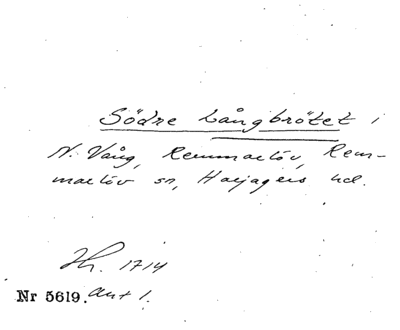 Södre Långbrötet i
N. Vång, Remmarlöv, Rem-
marlöv sn, Harjagers hd.
Hr. 1714
Nr 5619. Ant 1.